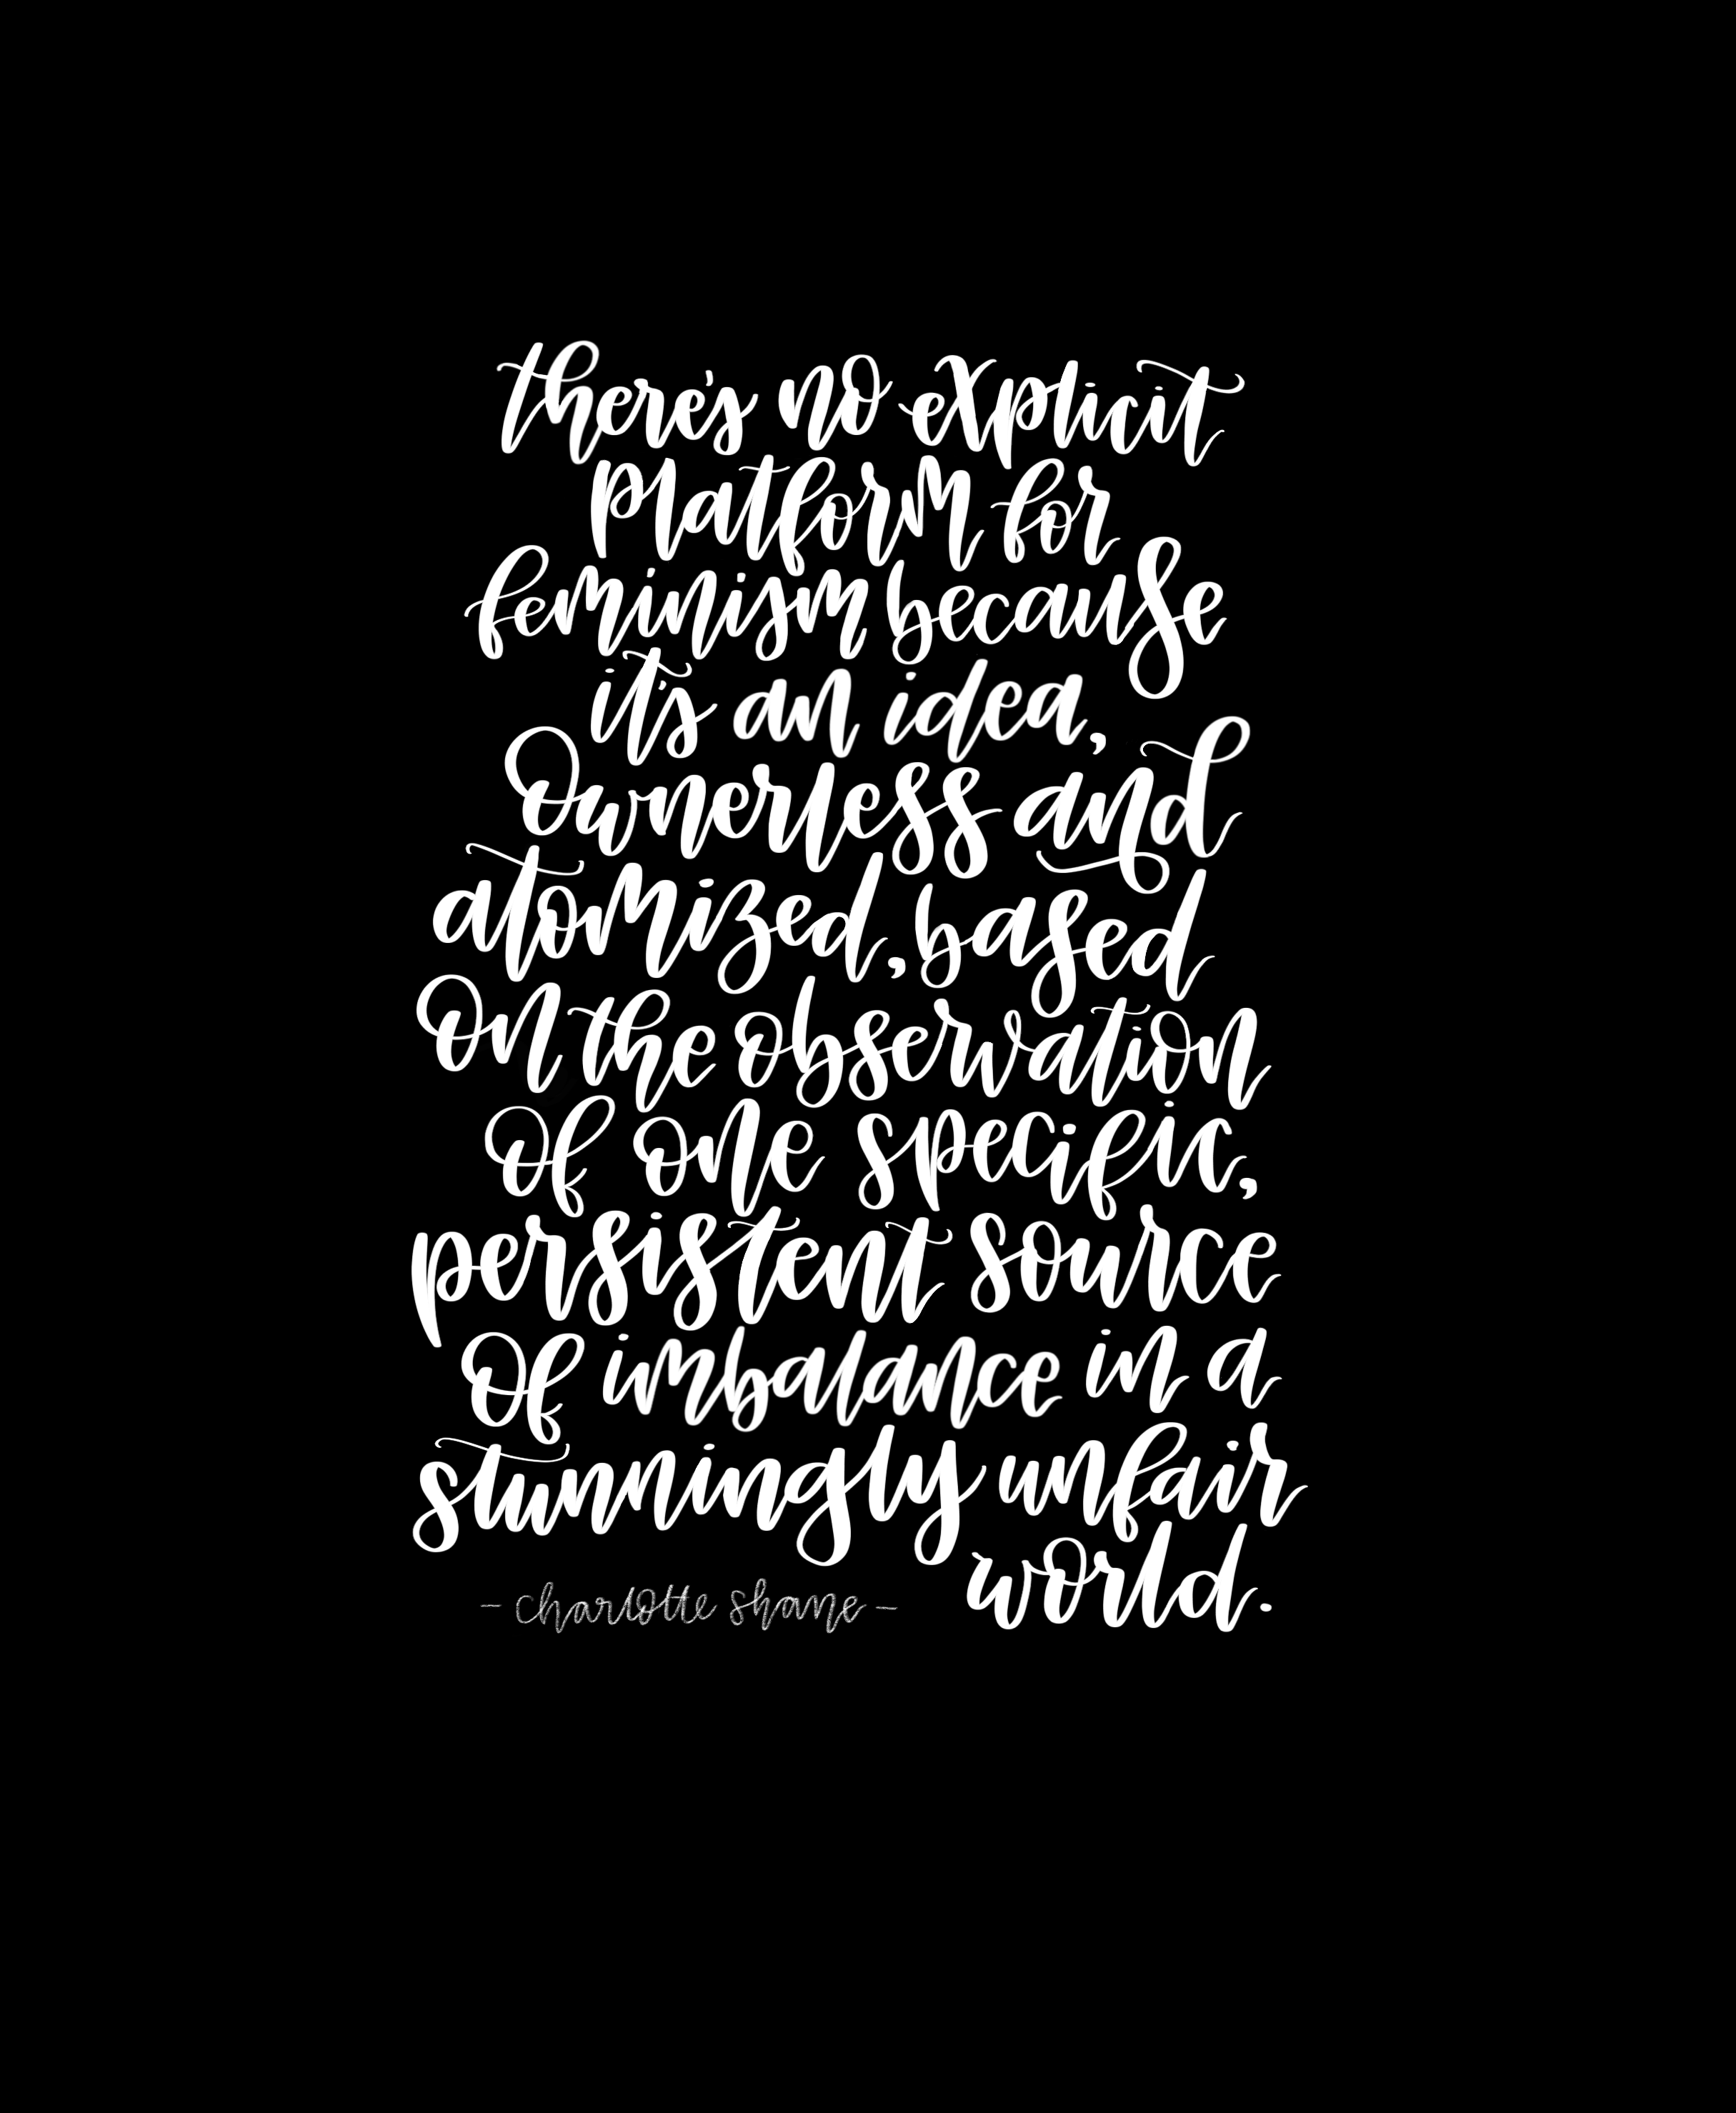 there's no explicit
platform for
feminism because
it's an idea,
Ownerless and
atomized, based
On the observation
Of one specific,
persistent source
Of imbalance in a
stunningly unfair
world.
- charlotte shane -